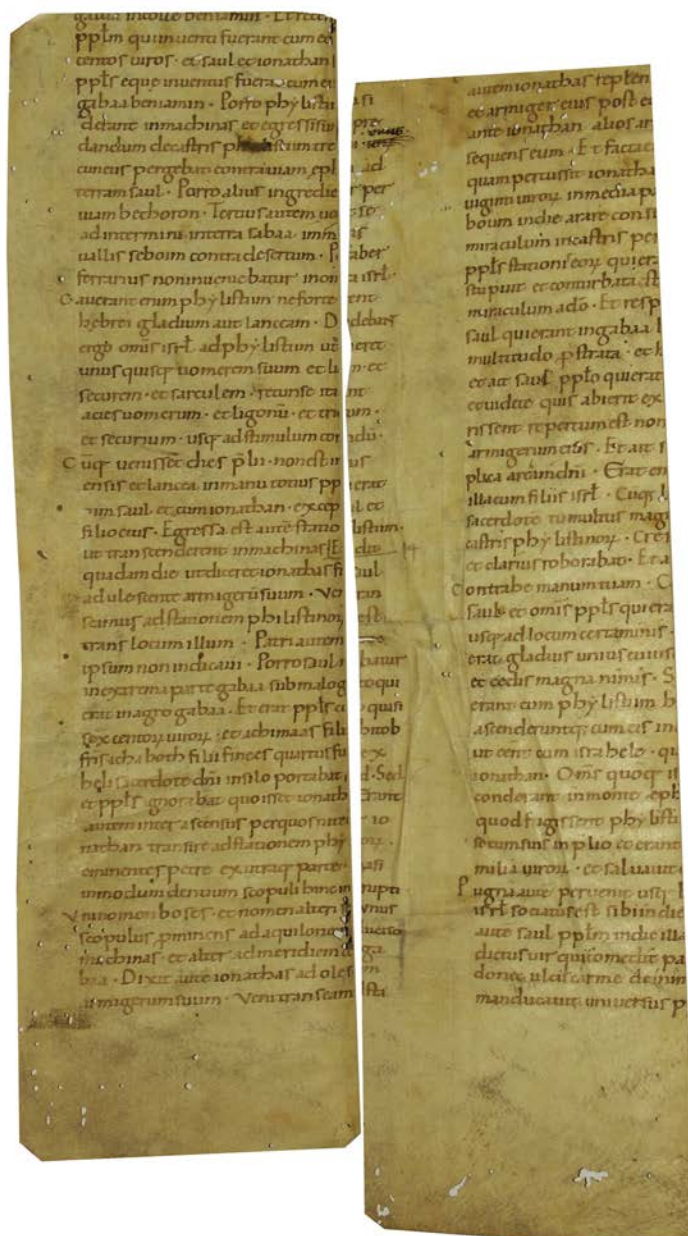 gabaa in colle beniamin · Et recen
pplm qui inventi fuerant cum eo
centos viros · et saul et ionathan
ppls eque inventus fuerat cum ei
gabaa beniamin · Porro phylistii si
derant in machinas et egressi sunt pre
dandum de castris phylistiim tre
cuneus pergebat contra viam eph ad
terram saul · Porro alius ingredie per
viam bethoron · Tertius autem uo ser
ad intermini in terra sabaa · imm as
vallis seboim contra desertum · F aber
ferrarius non inveniebatur in om a isrl ·
Cauerant enim phylistiim ne forte ent
hebrei gladium aut lanceam · D debant
ergo omis isrl ad phylistiim ut eret
unus quisq; vomerem suum et li n et
securem · et sarculem · retunse ita nt
acies vomerum · et ligonu · et trid m ·
et securium · usq; ad stimulum cor ndu ·
Cuq; venisset dies plii · non est in us
ensis et lancea in manu totius pp erat
cum saul et cum ionathan · excep ul et
filio eius · Egressa est aute statio listim ·
ut transcenderent in machinas E die
quadam die ut diceret ionathas fi aul
adulescente armigeru suum · Ven ran
seamus ad stationem philistinor est
trans locum illum · Patri autem
ipsum non indicavi · Porro saul i batur
in extrema parte gabaa sub malog to qui
erat in agro gabaa · Et erat ppls cu quisi
sexcentor viror · et achimaas filiu hitob
fris ichaboth filii finees qui ortus fu ex
heli sacerdote dni in silo portabat d · Sed
et ppls ignorabat quo isset ionath Erant
autem inter ascensus per quos nite io
nathan transire ad stationem phy nor ·
eminentes petre ex utraq; parte asi
in modum dentium scopuli hinc in rupti ·
Uni nomen boses · et nomen alteri s unus
scopulus prominens ad aquilone verso
machinas · et alter ad meridiem c ga
baa · Dixit aute ionathas ad oles m
armigerum suum · Veni transeam ista
autem ionathas repten
et armiger eius post eu
ante ionathan · alios ar
sequens eum · Et facta e
quam percussit ionatha
viginti viror in media pa
boum in die arare consu
miraculum in castris per
ppls stationis eor qui era
stupuit et conturbata est
miraculum a do · Et resp
saul qui erant in gabaa b
multitudo pstrata · et h
et ait saul pplo qui erat
et videte quis abierit ex
rissent repertum est non
armigerum eius · Et ait s
plica arcu dni · Erat en
illa cum filiis isrl · Cuq; l
sacerdote tumultus mag
castris phylistinor · Cre
et clarius roborabat · Et a
Contrahe manum tuam · C
saul · et omis ppls qui era
usq; ad locum certaminis ·
erat gladius unius cuius
et cedis magna nimis · S
erant cum phylistiim h
ascenderuntq; cum eis in
ut cent cum israhelo · qu
ionathan · Oms quoq; is
conderant in monte eph
quod fugissent phylisti
se cum suis in plio et erant
milia viror · et salvavit
Pugna aute pervenit usq; b
isrl sociatus est sibi in die
aute saul pplm in die illa
dictus vir qui comedit pa
donec ulciscar me de inim
manducavit universus p